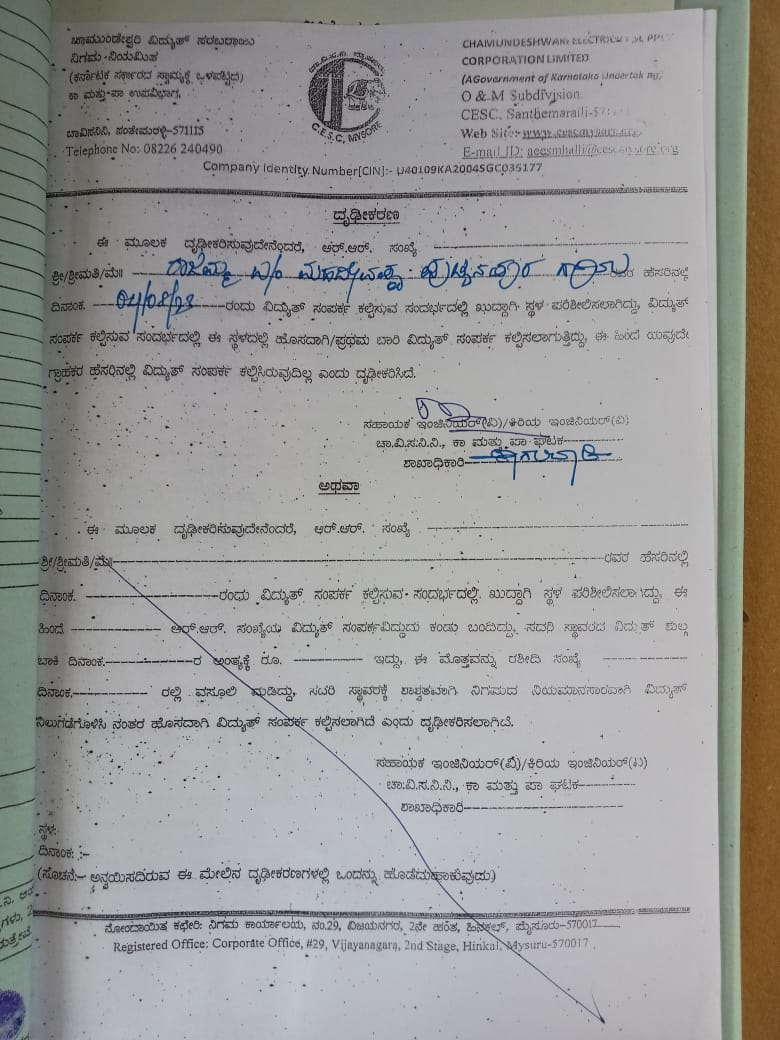 ಚಾಮುಂಡೇಶ್ವರಿ ವಿದ್ಯುತ್ ಸರಬರಾಜು
ನಿಗಮ-ನಿಯಮಿತ
(ಕರ್ನಾಟಕ ಸರ್ಕಾರದ ಸ್ವಾಮ್ಯಕ್ಕೆ ಒಳಪಟ್ಟಿದೆ)
ಕಾ ಮತ್ತು-ಪಾ ಉಪವಿಭಾಗ,
ಚಾವಿಸನಿನಿ, ಸಂತೇಮರಳ್ಳಿ-571115
Telephone No: 08226 240490
C.E.S.C, MYSORE
CHAMUNDESHWARI ELECTRICITY SUPPLY
CORPORATION LIMITED
(AGovernment of Karnataka Undertaking)
O & M Subdivision
CESC, Santhemaralli-571
Web Site:
E-mail ID:
Company Identity Number[CIN]:- U40109KA2004SGC035177
ದೃಢೀಕರಣ
ಈ ಮೂಲಕ ದೃಢೀಕರಿಸುವುದೇನೆಂದರೆ, ಆರ್.ಆರ್. ಸಂಖ್ಯೆ
ಶ್ರೀ/ಶ್ರೀಮತಿ/ಮೆ॥ ರಾಜಮ್ಮ ಗ್ರಾಮ ರವರ ಹೆಸರಿನಲ್ಲಿ
ದಿನಾಂಕ. ರಂದು ವಿದ್ಯುತ್ ಸಂಪರ್ಕ ಕಲ್ಪಿಸುವ ಸಂದರ್ಭದಲ್ಲಿ ಖುದ್ದಾಗಿ ಸ್ಥಳ ಪರಿಶೀಲಿಸಲಾಗಿದ್ದು, ವಿದ್ಯುತ್
ಸಂಪರ್ಕ ಕಲ್ಪಿಸುವ ಸಂದರ್ಭದಲ್ಲಿ ಈ ಸ್ಥಳದಲ್ಲಿ ಹೊಸದಾಗಿ/ಪ್ರಥಮ ಬಾರಿ ವಿದ್ಯುತ್ ಸಂಪರ್ಕ ಕಲ್ಪಿಸಲಾಗುತ್ತಿದ್ದು, ಈ ಹಿಂದೆ ಯಾವುದೇ
ಗ್ರಾಹಕರ ಹೆಸರಿನಲ್ಲಿ ವಿದ್ಯುತ್ ಸಂಪರ್ಕ ಕಲ್ಪಿಸಿರುವುದಿಲ್ಲ ಎಂದು ದೃಢೀಕರಿಸಿದೆ.
ಸಹಾಯಕ ಇಂಜಿನಿಯರ್(ವಿ)/ಕಿರಿಯ ಇಂಜಿನಿಯರ್(ವಿ)
ಚಾ.ವಿ.ಸ.ನಿ.ನಿ., ಕಾ ಮತ್ತು ಪಾ ಘಟಕ
ಶಾಖಾಧಿಕಾರಿ
ಅಥವಾ
ಈ ಮೂಲಕ ದೃಢೀಕರಿಸುವುದೇನೆಂದರೆ, ಆರ್.ಆರ್. ಸಂಖ್ಯೆ
ಶ್ರೀ/ಶ್ರೀಮತಿ/ಮೆ॥ ರವರ ಹೆಸರಿನಲ್ಲಿ
ದಿನಾಂಕ. ರಂಧು ವಿದ್ಯುತ್ ಸಂಪರ್ಕ ಕಲ್ಪಿಸುವ ಸಂದರ್ಭದಲ್ಲಿ ಖುದ್ದಾಗಿ ಸ್ಥಳ ಪರಿಶೀಲಿಸಲಾಗಿದ್ದು, ಈ
ಹಿಂದೆ ಆರ್.ಆರ್. ಸಂಖ್ಯೆಯ ವಿದ್ಯುತ್ ಸಂಪರ್ಕವಿದ್ದುದು ಕಂಡು ಬಂದಿದ್ದು, ಸದರಿ ಸ್ಥಾವರದ ವಿದ್ಯುತ್ ಶುಲ್ಕ
ಬಾಕಿ ದಿನಾಂಕ. ರ ಅಂತ್ಯಕ್ಕೆ ರೂ. ಇದ್ದು, ಈ ಮೊತ್ತವನ್ನು ರಶೀದಿ ಸಂಖ್ಯೆ
ದಿನಾಂಕ. ರಲ್ಲಿ ವಸೂಲಿ ಮಾಡಿದ್ದು, ಸದರಿ ಸ್ಥಾವರಕ್ಕೆ ಶಾಶ್ವತವಾಗಿ ನಿಗಮದ ನಿಯಮಾನುಸಾರವಾಗಿ ವಿದ್ಯುತ್
ನಿಲುಗಡೆಗೊಳಿಸಿ ನಂತರ ಹೊಸದಾಗಿ ವಿದ್ಯುತ್ ಸಂಪರ್ಕ ಕಲ್ಪಿಸಲಾಗಿದೆ ಎಂದು ದೃಢೀಕರಿಸಲಾಗಿದೆ.
ಸಹಾಯಕ ಇಂಜಿನಿಯರ್(ವಿ)/ಕಿರಿಯ ಇಂಜಿನಿಯರ್(ವಿ)
ಚಾ.ವಿ.ಸ.ನಿ.ನಿ., ಕಾ ಮತ್ತು ಪಾ ಘಟಕ
ಶಾಖಾಧಿಕಾರಿ
ಸ್ಥಳ:
ದಿನಾಂಕ: :-
(ಸೂಚನೆ:- ಅನ್ವಯಿಸದಿರುವ ಈ ಮೇಲಿನ ದೃಢೀಕರಣಗಳಲ್ಲಿ ಒಂದನ್ನು ಹೊಡೆದುಹಾಕುವುದು)
ನೋಂದಾಯಿತ ಕಛೇರಿ: ನಿಗಮ ಕಾರ್ಯಾಲಯ, ನಂ.29, ವಿಜಯನಗರ, 2ನೇ ಹಂತ, ಹಿನಕಲ್, ಮೈಸೂರು-570017
Registered Office: Corporate Office, #29, Vijayanagara, 2nd Stage, Hinkal, Mysuru-570017